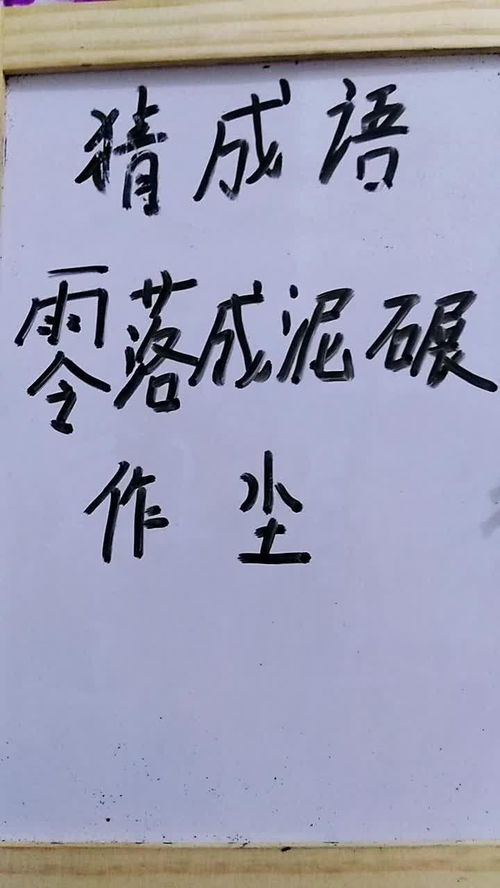 猜成语
零落成泥碾
作尘